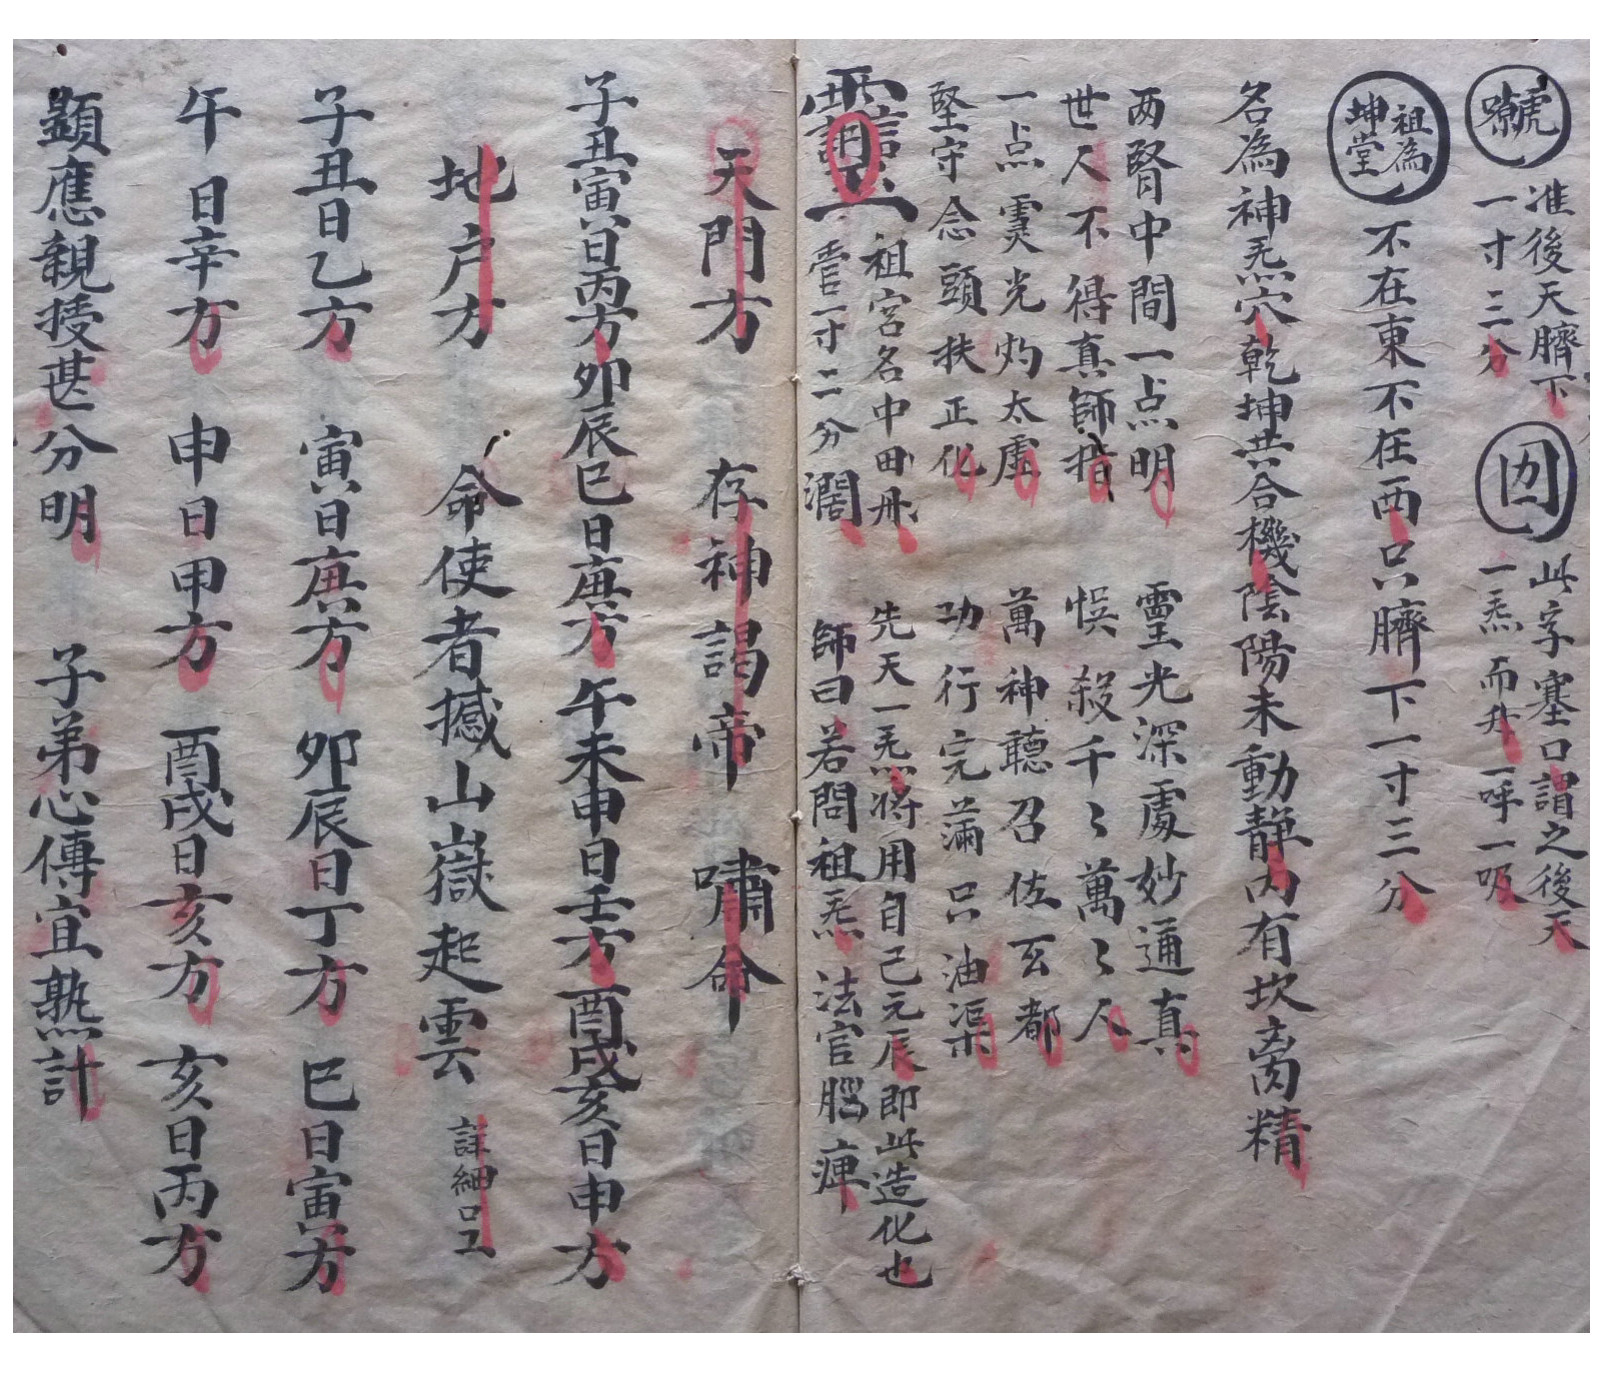 虎嘹
准後天臍下
一寸三分
囚
此字塞口謂之後天
一炁而升一呼一吸
祖為坤堂
不在東不在西只臍下一寸三分
名為神炁穴乾坤共合機陰陽未動靜內有坎离精
两腎中間一点明 靈光深處妙通真
世人不得真師指 悮殺千〻萬〻人
一点灵光灼太虛 萬神聽召佐玄都
堅守念頭扶正化 功行完滿只油渠
祖宮名中田丹 先天一炁將用自己元辰即此造化也
一寸二分濶 師曰若問祖炁 法官腦
天門方 存神謁帝 嘯命
子丑寅日丙方卯辰巳日庚方午未申日壬方酉戌亥日申方
地户方 命使者撼山嶽起雲 詳細口工
子丑日乙方 寅日庚方 卯辰日丁方 巳日寅方
午日辛方 申日甲方 酉戌日亥方 亥日丙方
顯應親授甚分明 子弟心傳宜熟計